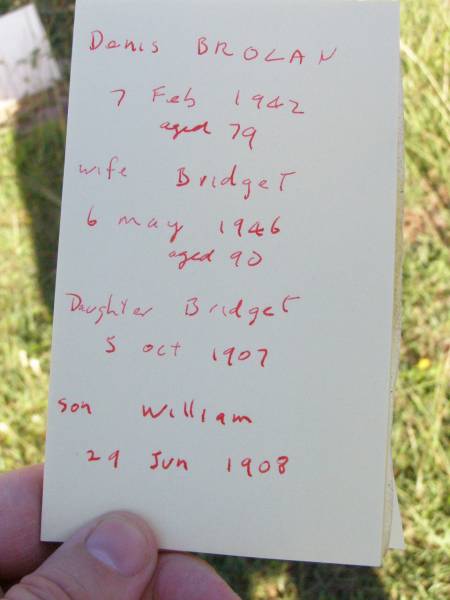 Denis BROLAN
7 Feb 1942
aged 79
wife Bridget
6 may 1946
aged 90
Daughter Bridget
5 oct 1907
son William
29 Jun 1908